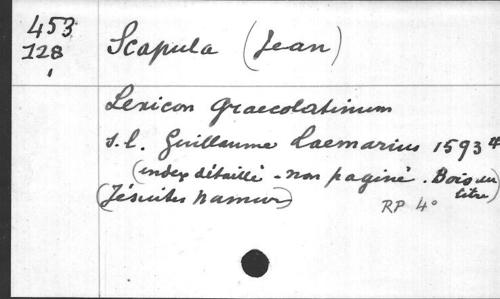 453
128
Scapula (Jean)
Lexicon graecolatinum
s.l. Guillaume Laemarius 1593 4°
(index détaillé - non paginé. Bois au titre)
(Jésuites Namur)
RP 4°